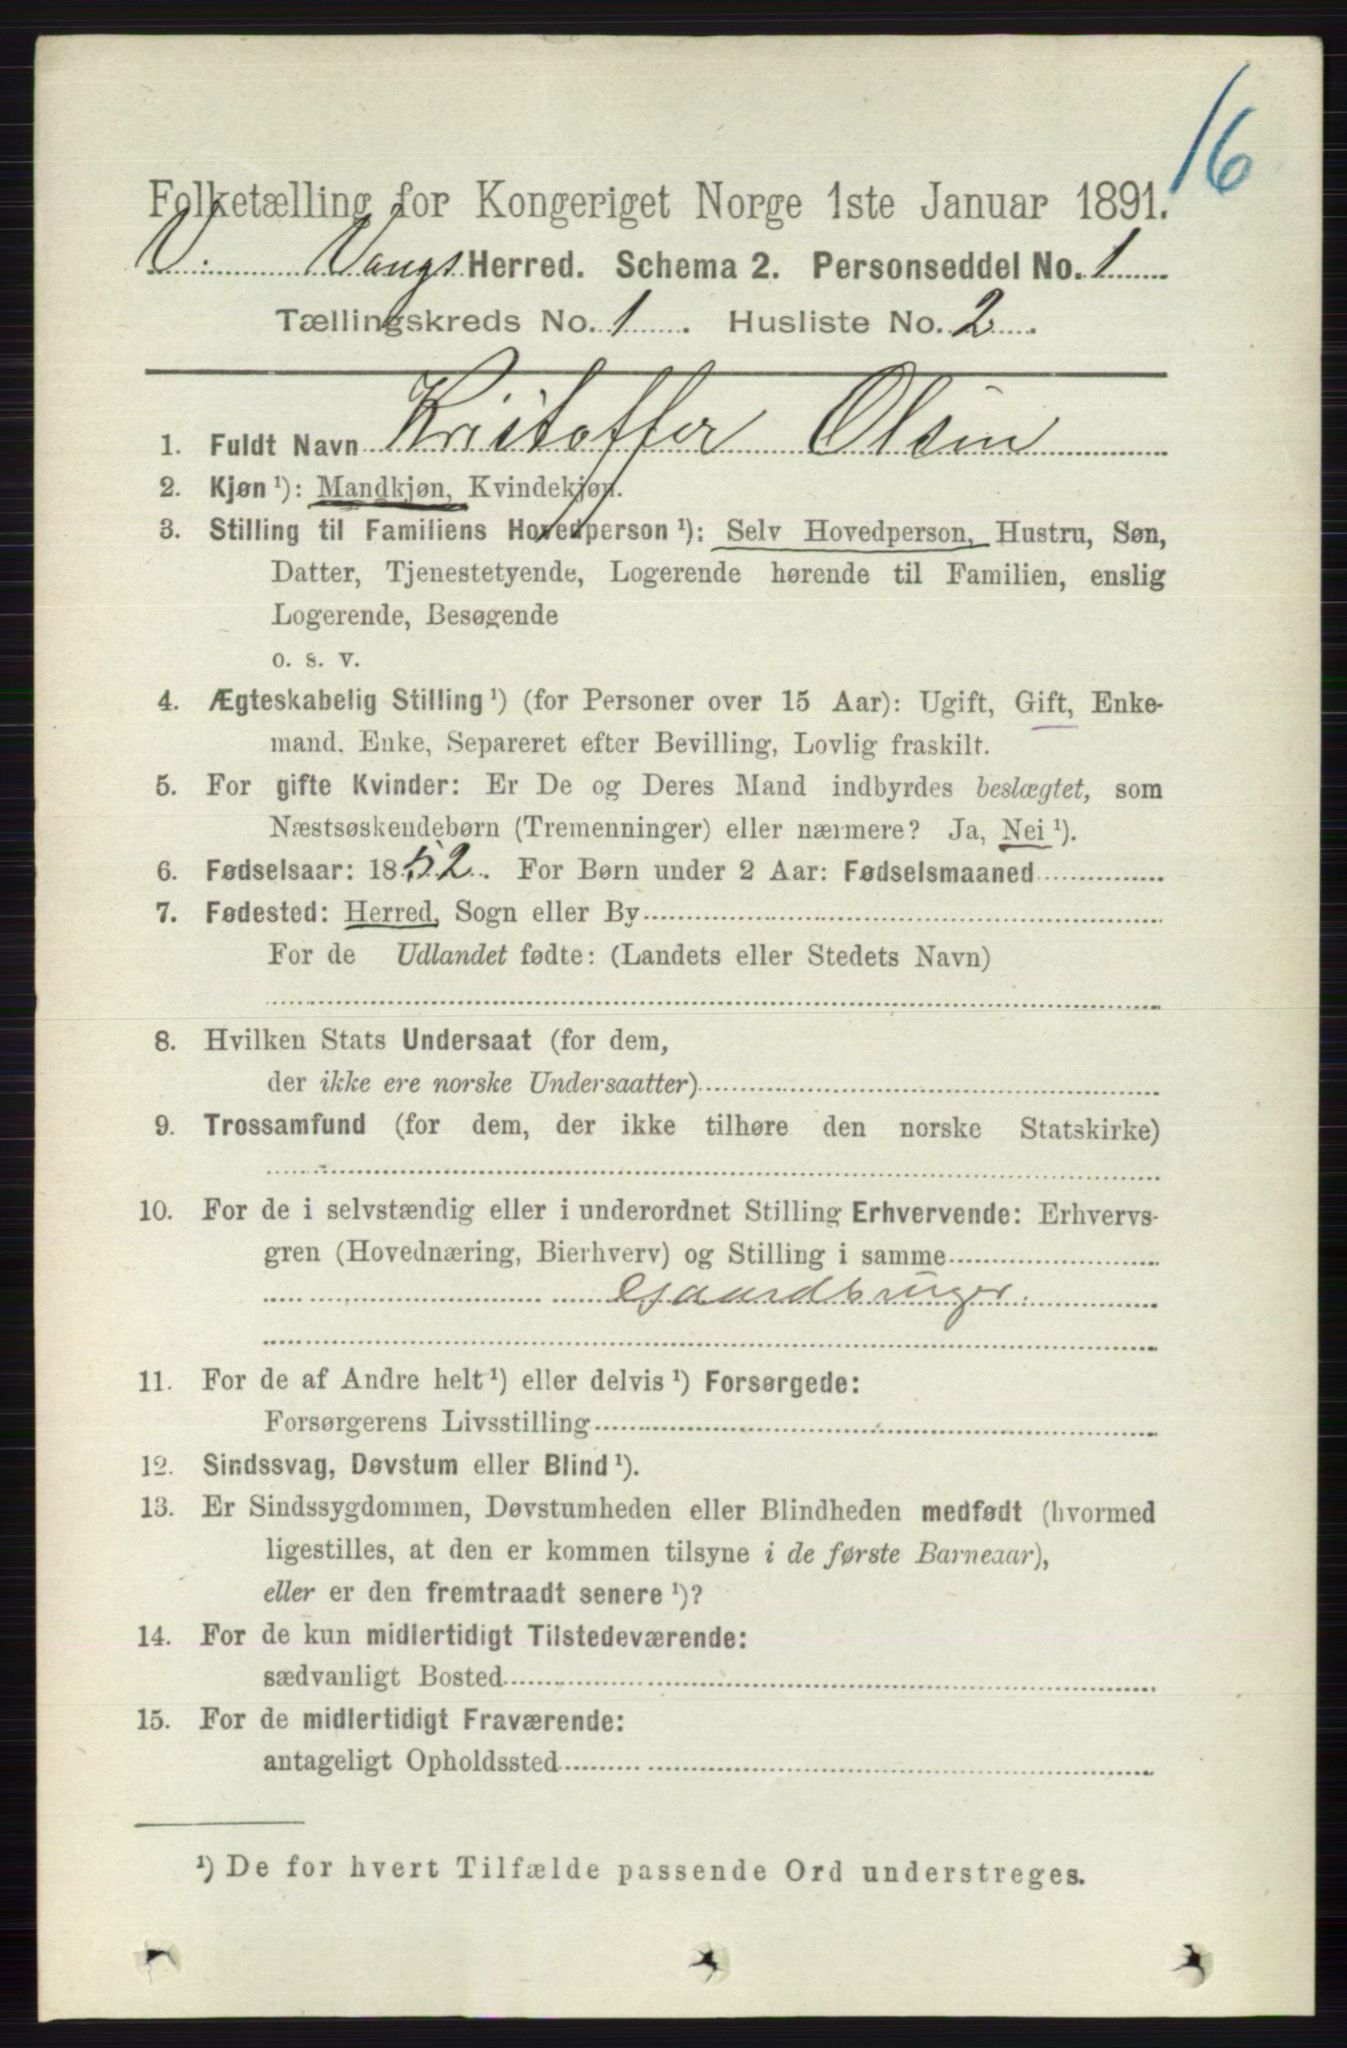 16
Folketælling for Kongeriget Norge 1ste Januar 1891.
V. Vangs Herred. Schema 2. Personseddel No. 1
Tællingskreds No. 1. Husliste No. 2.
1. Fuldt Navn Kristoffer Olsen
2. Kjøn ¹): Mandkjøn, Kvindekjøn.
3. Stilling til Familiens Hovedperson ¹): Selv Hovedperson, Hustru, Søn,
Datter, Tjenestetyende, Logerende hørende til Familien, enslig
Logerende, Besøgende
o. s. v.
4. Ægteskabelig Stilling ¹) (for Personer over 15 Aar): Ugift, Gift, Enke-
mand, Enke, Separeret efter Bevilling, Lovlig fraskilt.
5. For gifte Kvinder: Er De og Deres Mand indbyrdes beslægtet, som
Næstsøskendebørn (Tremenninger) eller nærmere? Ja, Nei ¹).
6. Fødselsaar: 1852. For Børn under 2 Aar: Fødselsmaaned
7. Fødested: Herred, Sogn eller By
For de Udlandet fødte: (Landets eller Stedets Navn)
8. Hvilken Stats Undersaat (for dem,
der ikke ere norske Undersaatter)
9. Trossamfund (for dem, der ikke tilhøre den norske Statskirke)
10. For de i selvstændig eller i underordnet Stilling Erhvervende: Erhvervs-
gren (Hovednæring, Bierhverv) og Stilling i samme
Gaardbruger.
11. For de af Andre helt ¹) eller delvis ¹) Forsørgede:
Forsørgerens Livsstilling
12. Sindssvag, Døvstum eller Blind ¹).
13. Er Sindssygdommen, Døvstumheden eller Blindheden medfødt (hvormed
ligestilles, at den er kommen tilsyne i de første Barneaar),
eller er den fremtraadt senere ¹)?
14. For de kun midlertidigt Tilstedeværende:
sædvanligt Bosted
15. For de midlertidigt Fraværende:
antageligt Opholdssted
¹) De for hvert Tilfælde passende Ord understreges.